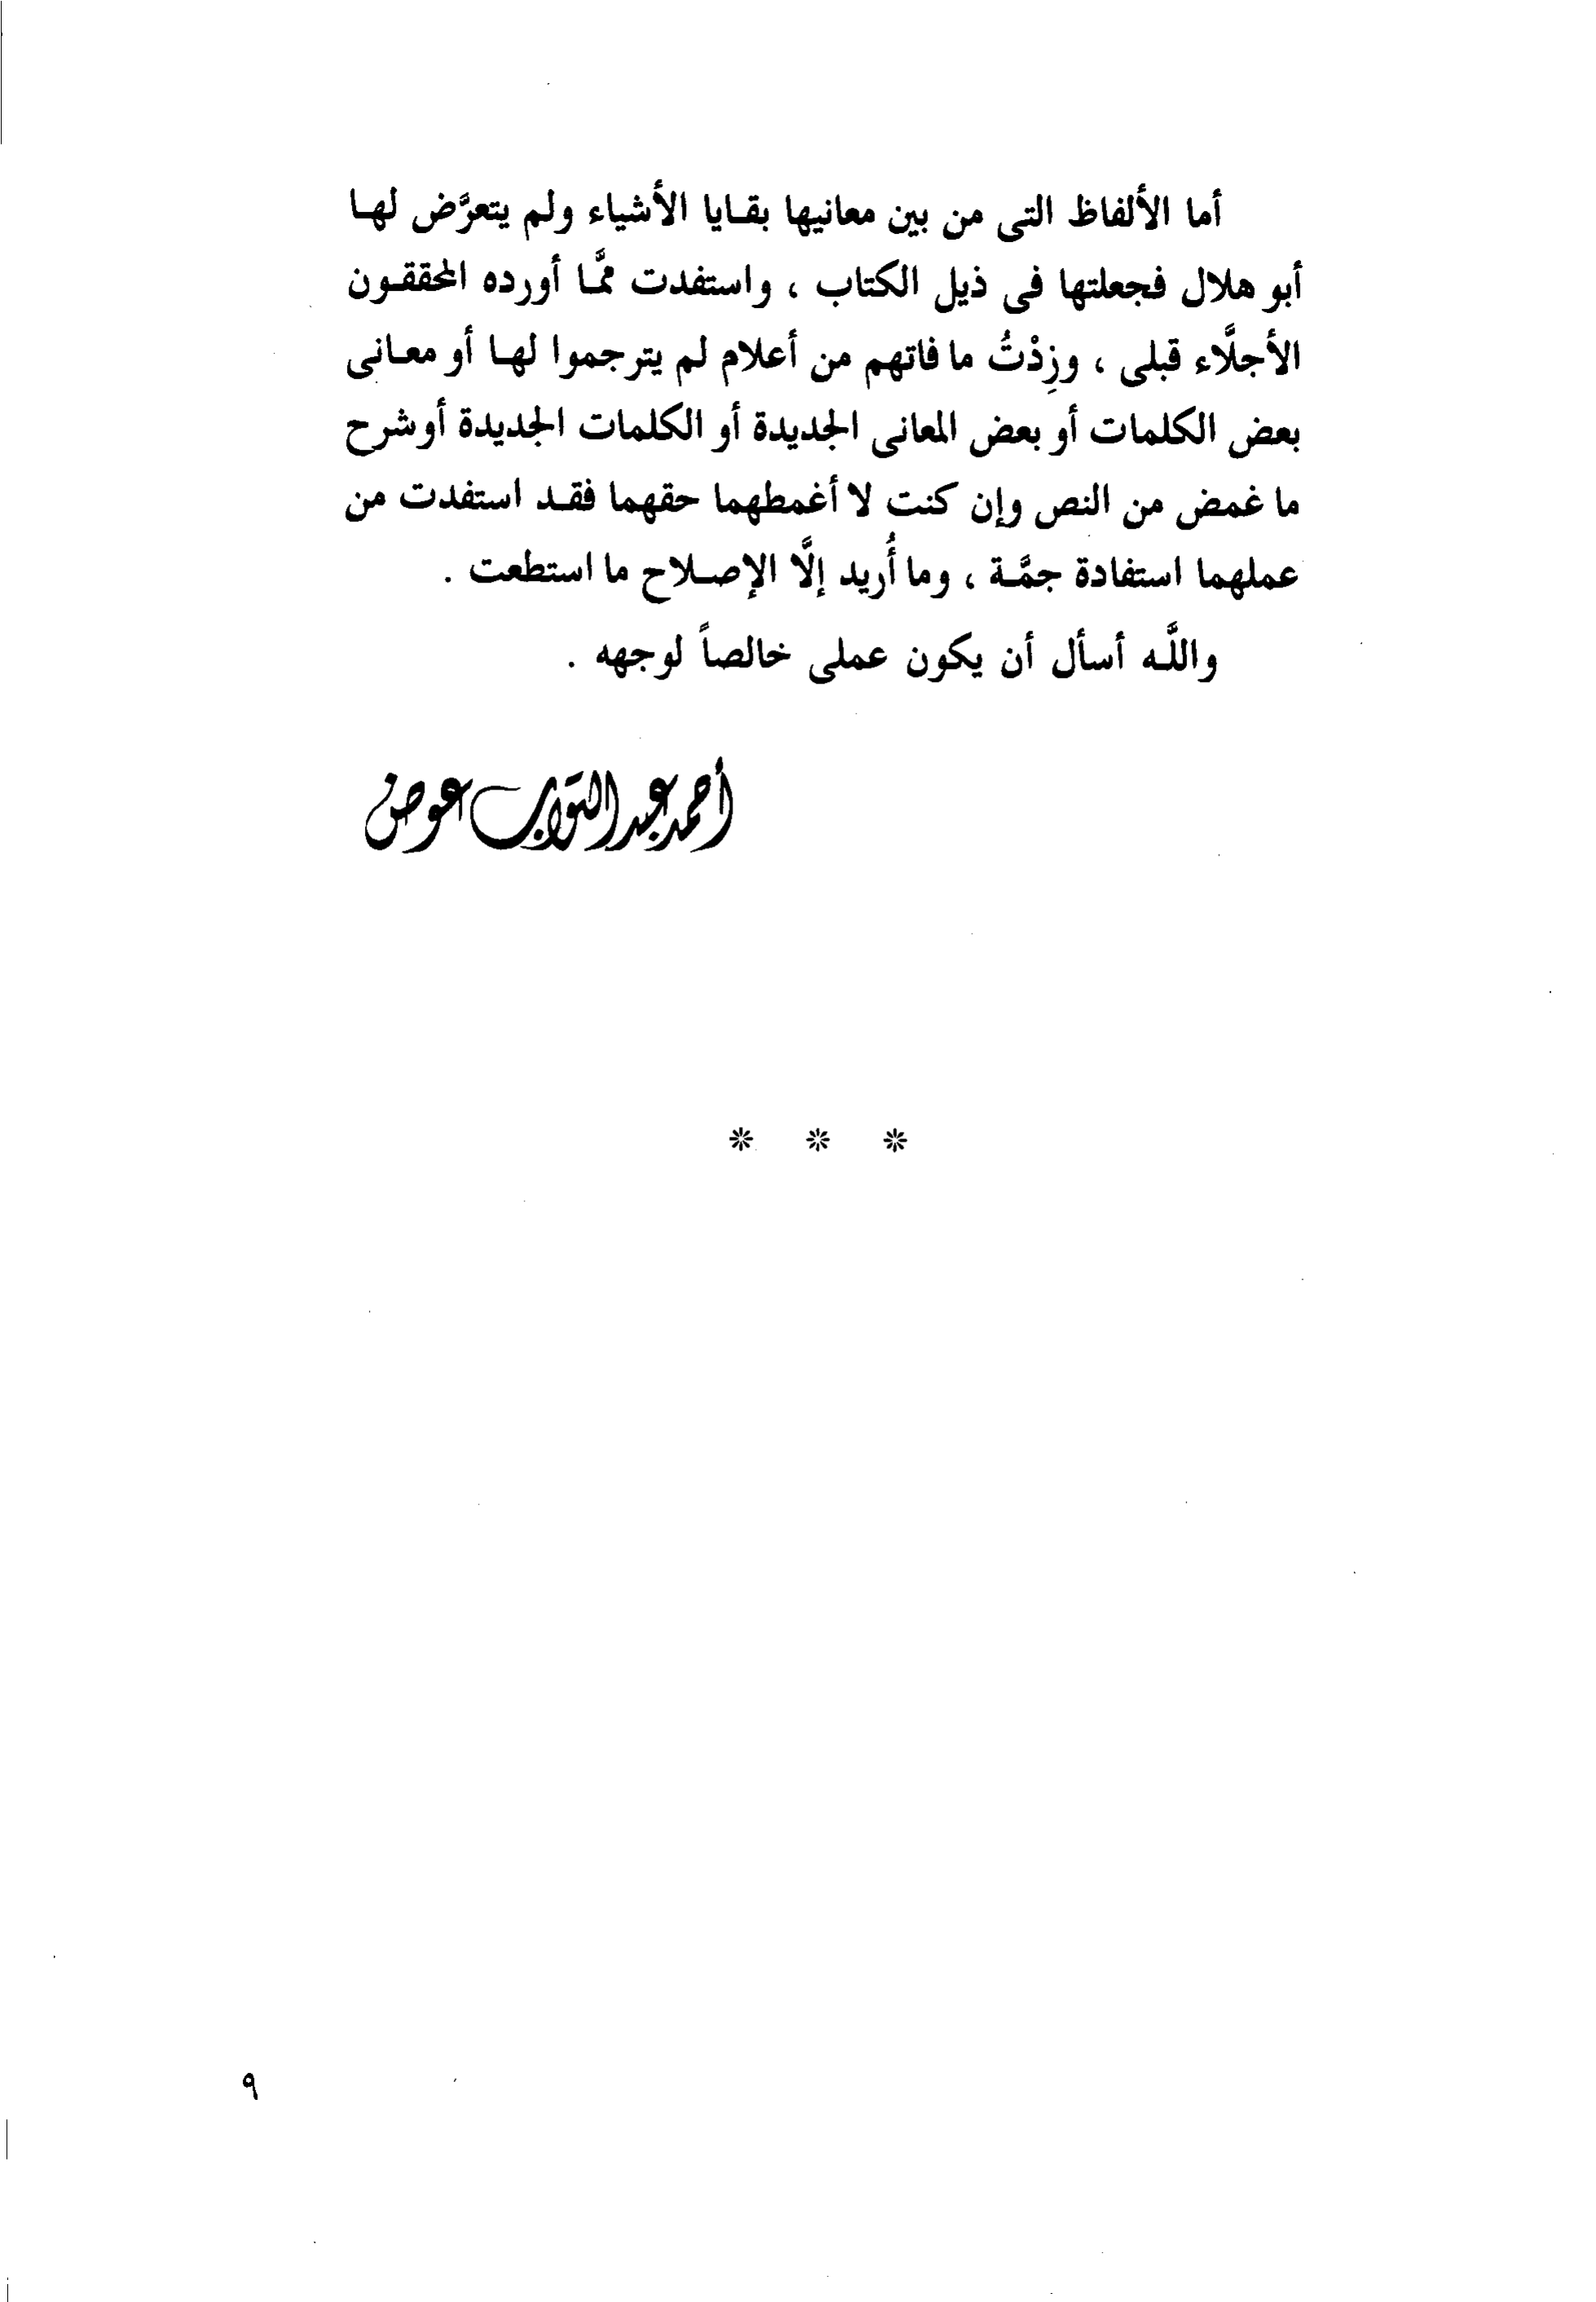 أما الألفاظ التى من بين معانيها بقـايا الأشياء ولم يتعرَّض لهـا
أبو هلال فجعلتها فى ذيل الكتاب ، واستفدت ممَّـا أورده المحققـون
الأجلَّاء قبلى ، وزِدْتُ ما فاتهم من أعلام لم يترجموا لهـا أو معـانى
بعض الكلمات أو بعض المعانى الجديدة أو الكلمات الجديدة أو شرح
ما غمض من النص وإن كنت لا أغمطهما حقهما فقـد استفدت من
عملهما استفادة جمَّـة ، وما أُريد إلَّا الإصـلاح ما استطعت .
واللَّـه أسأل أن يكون عملى خالصاً لوجهه .
أحمد عبد التواب عوض
* * *
٩